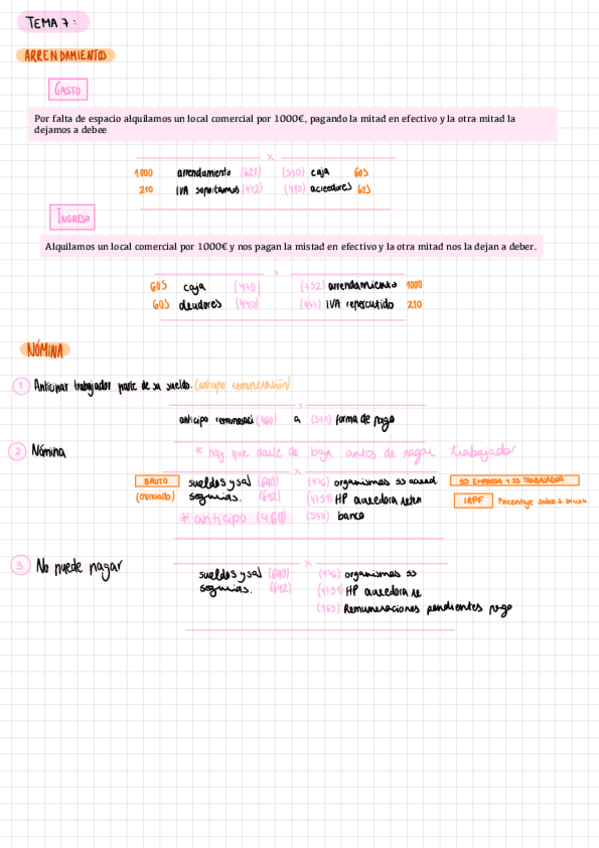 TEMA 7:
ARRENDAMIENTOS
GASTO
Por falta de espacio alquilamos un local comercial por 1000€, pagando la mitad en efectivo y la otra mitad la
dejamos a debee
x
1000 arrendamiento (621) (570) caja 605
210 IVA soportamos (472) (410) acreedores 605
INGRESO
Alquilamos un local comercial por 1000€ y nos pagan la mistad en efectivo y la otra mitad nos la dejan a deber.
x
605 caja (470) (752) arrendamiento 1000
605 deudores (440) (477) IVA repercutido 210
NÓMINA
1 Anticipar trabajador parte de su sueldo. (anticipo remuneración)
x
anticipo remuneraci (460) a (57x) forma de pago
2 Nómina * hay que darle de baja antes de pagar trabajador
x
BRUTO sueldos y sal (640) (476) organismos ss acreed SS EMPRESA + SS TRABAJADOR
(enunciado) segurias. (642) (4751) HP acreedora reten IRPF Porcentaje sobre s bruto
* anticipo (460) (57x) banco
3 No puede pagar
x
sueldos y sal (640) (476) organismos ss
segurias. (642) (4751) HP acreedora re
(465) Remuneraciones pendientes pago